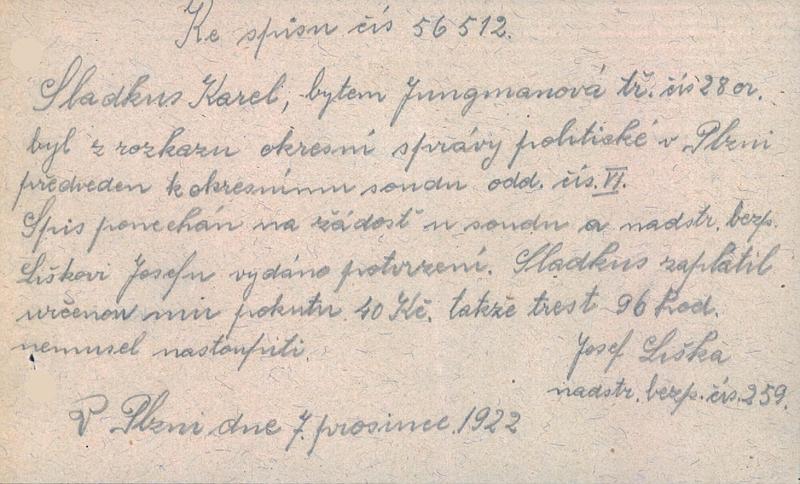 Ke spisu čís 56512.
Sladkus Karel, bytem Jungmanová tř. čís 28 or.
byl z rozkazu okresní správy politické v Plzni
předveden k okresnímu soudu odd. čís. VI.
Spis ponechán na žádost u soudu a nadstr. bezp.
Liškovi Josefu vydáno potvrzení. Sladkus zaplatil
určenou mu pokutu 40 Kč. takže trest 96 hod.
nemusel nastoupiti.
Josef Liška
nadstr. bezp. čís. 259.
V Plzni dne 7. prosince 1922